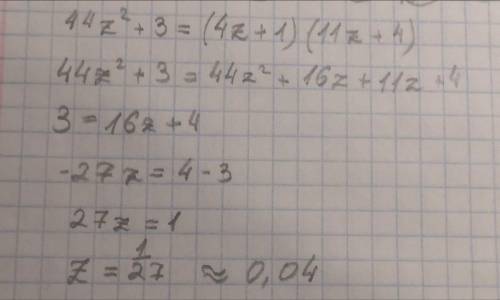 44z² + 3 = (4z + 1) (11z + 4)
44z² + 3 = 44z² + 16z + 11z + 4
3 = 16z + 4
-27z = 4 - 3
27z = 1
z = 1/27 ≈ 0,04